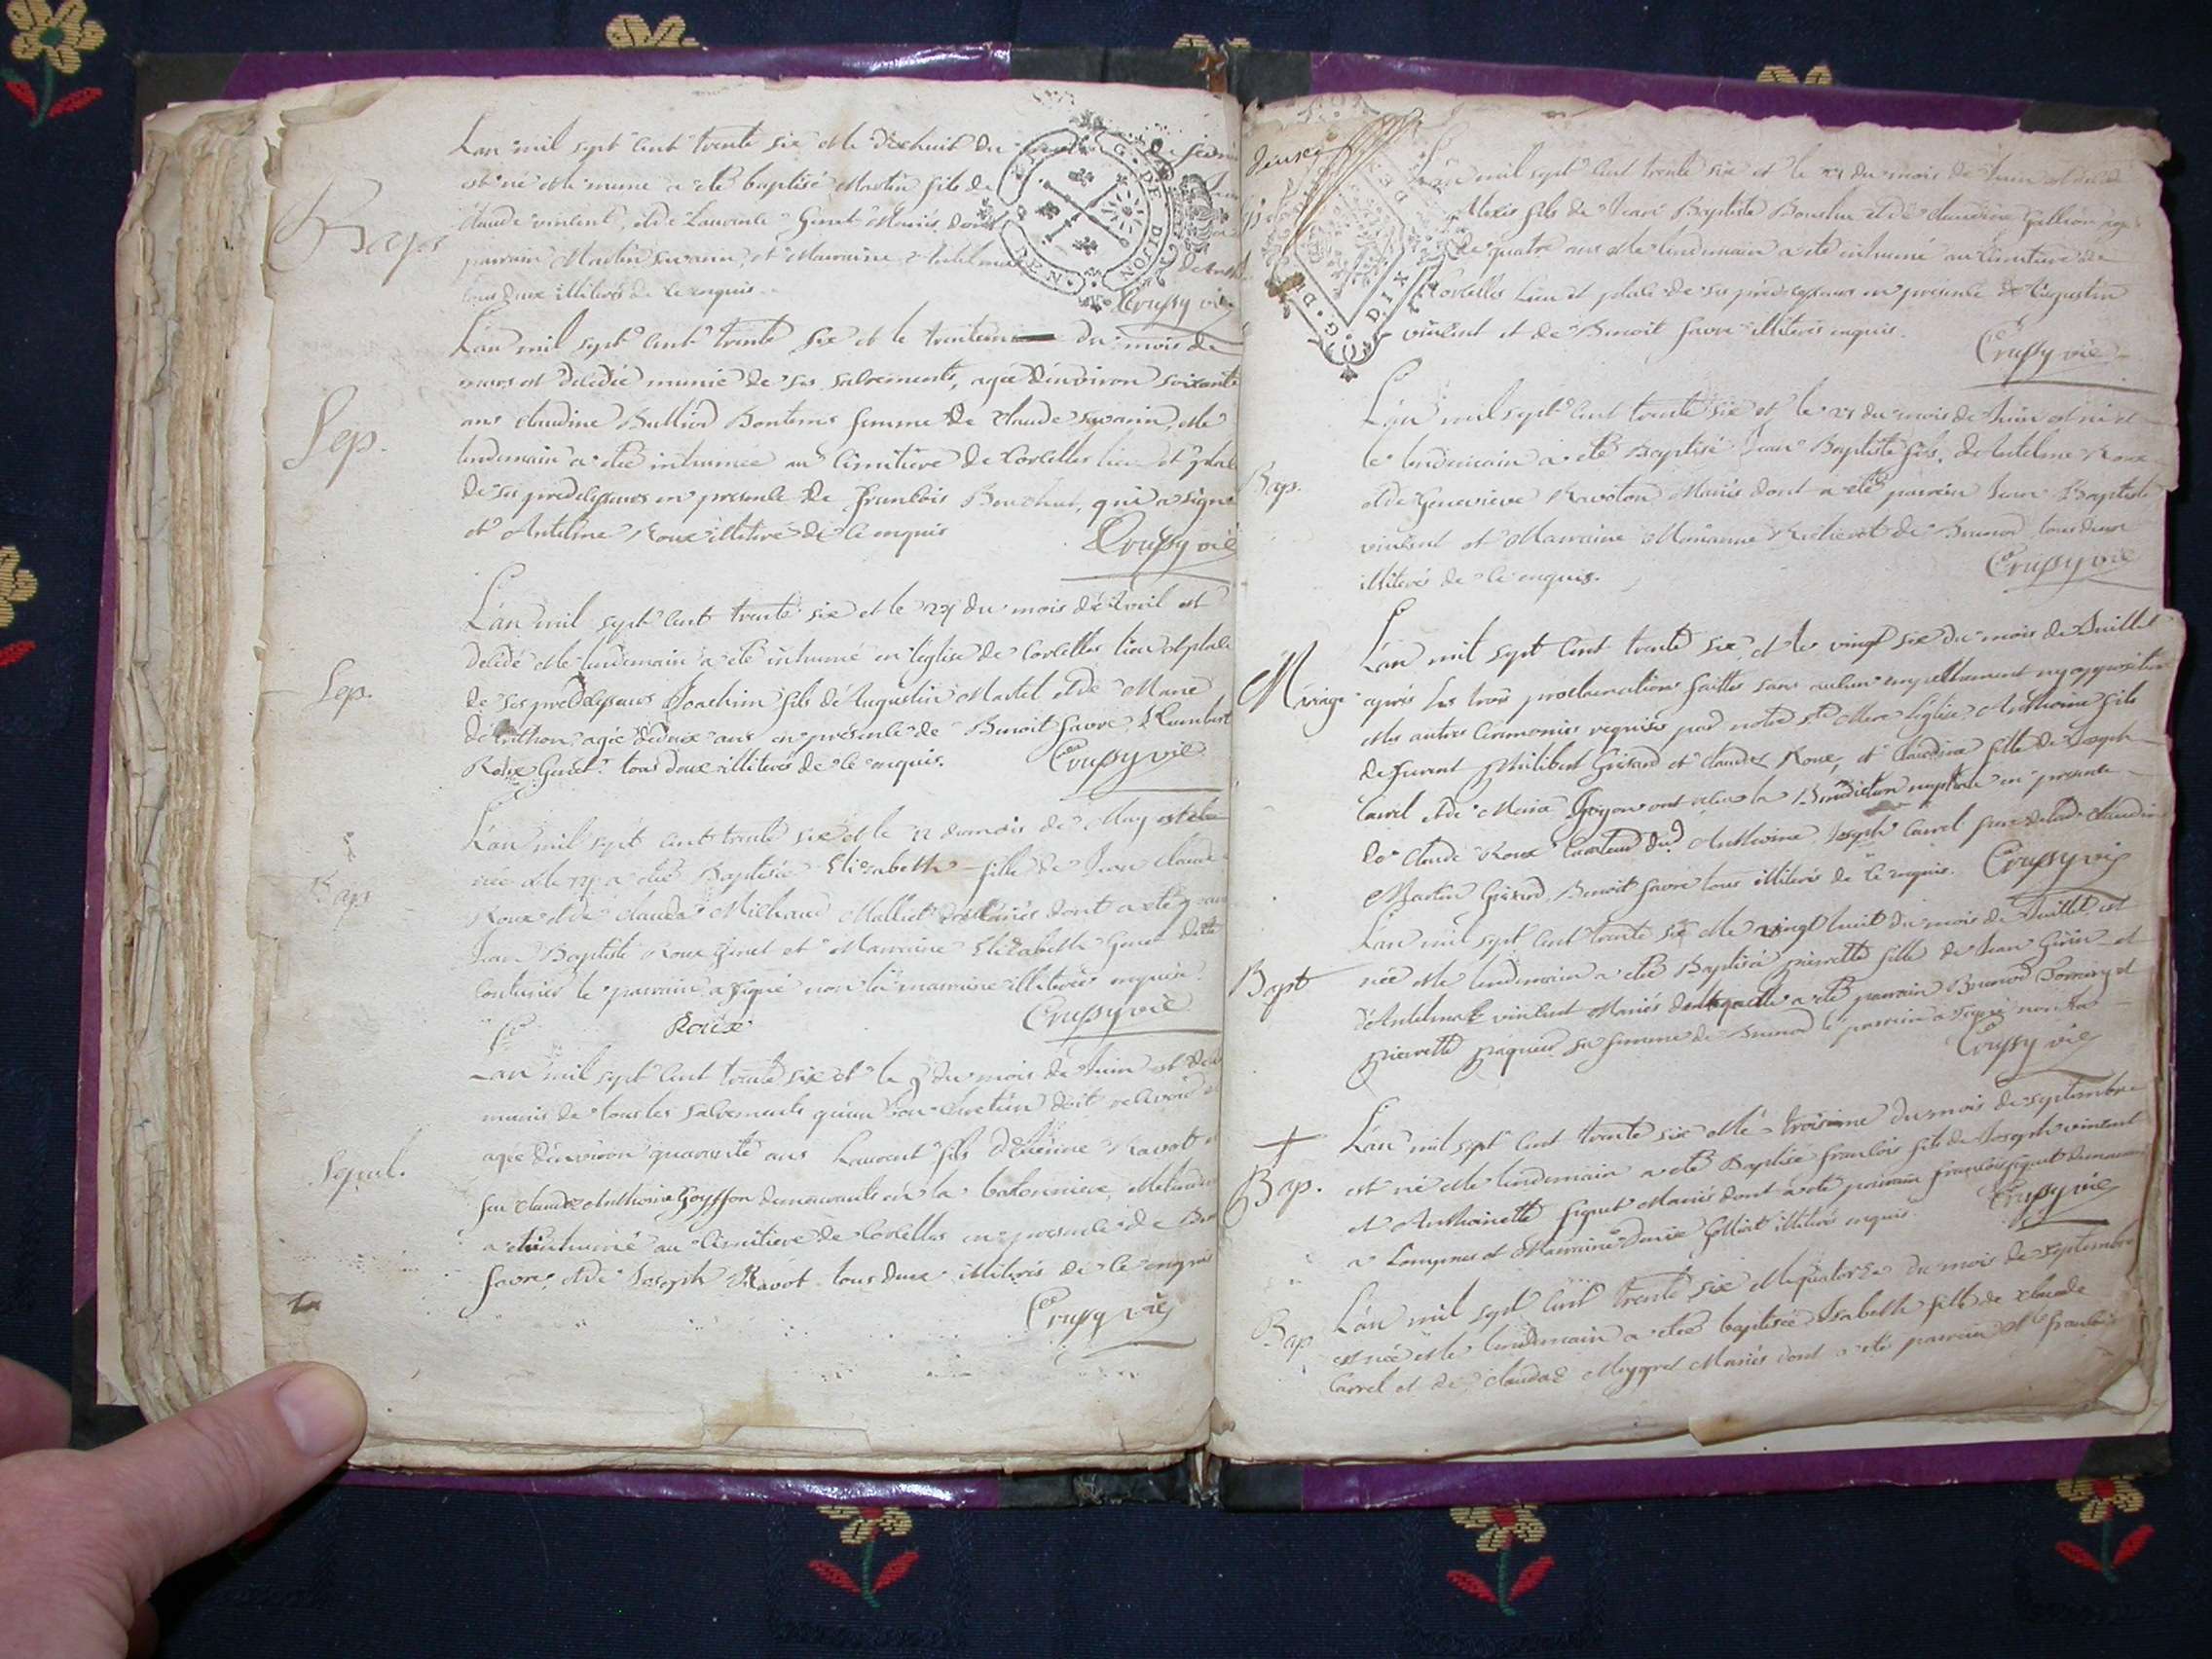 Bap.
L'an mil sept cent trente six et le dixhuit du
est né et le meme a eté baptisé Martin fils de
claude vincent, et de Laurence Genet Mariés dont
parrain Martin Savarin, et Marraine Anthelma
tous deux illiterés de ce enquis
Crussy vic
G. DE DIJON
DEN.
Sep.
L'an mil sept cent trente six et le trentieme du mois de
mars est decedée munie de ses sacrements, agée d'environ soixante
ans claudine Bulliod Bontems femme de claude Savarin, et le
lendemain a etée inhumée au cimitiere de Corcelles lieu et place
de ses predecesseurs en presence de francois Bouchut, qui a signé
et Antelme Roux illiteré de ce enquis
Crussy vic
Sep.
L'an mil sept cent trente six et le 27 du mois d'Avril est
decedé et le lendemain a eté inhumé en l'eglise de Corcelles lieu et place
de ses predecesseurs Joachim fils d'Augustin Martel et de Marie
agée de deux ans en presence de Benoit favre, et humbert
Roux Genet tous deux illiterés de ce enquis.
Crussy vic
Bap
L'an mil sept cent trente six et le 12 du mois de May est
née et le 13 a eté Baptisée Elizabeth fille de Jean claude
Roux et de clauda Michaud Malliet Mariés dont a eté
Jean Baptiste Roux Genet et Marraine Elizabeth Genet
le parrain a signé non la marraine illiterée enquise.
Roux
Crussy vic
Sepul.
L'an mil sept cent trente six et le 9 du mois de Juin est
munis de tous les sacrements qu'un bon chretien doit recevoir
agée d'environ quarante ans Laurent fils d'Etienne Ravot
feu claude Anthoine Goyffon demeurants en la batonniere, et le lendemain
a eté inhumé au cimitiere de Corcelles en presence de
favre, et de Joseph Ravot tous deux illiterés de ce enquis
Crussy vic
deuxe
L'an mil sept cent trente six et le 21 du mois de Juin
Alexis fils de Jean Baptiste Bouchu et de claudine
de quatre ans et le lendemain a eté inhumé au cimitiere de
Corcelles lieu et place de ses predecesseurs en presence d'Augustin
vincent et de Benoit favre illiterés enquis.
Crussy vic
Bap.
L'an mil sept cent trente six et le 21 du mois de Juin est né et
le lendemain a eté Baptisé Jean Baptiste fils d'Antelme Roux
et de Genevieve Ravoton Mariés dont a eté parrain Jean Baptiste
vincent et Marraine Marianne de Brenod tous deux
illiterés de ce enquis.
Crussy vic
Mariage
L'an mil sept cent trente six, et le vingt six du mois de Juillet
après les trois proclamations faittes sans aucun empechement ny opposition
et les autres ceremonies requises par notre Ste Mere l'eglise, Anthoine fils
de furent Philibert Girard et claudaz Roux, et claudine fille de Joseph
Carrel et de Maria Goyon ont reçu la Benediction nuptiale en presence
de claude Roux Curateur dud. Anthoine, Joseph Carrel pere de lad. claudine
Martin Girard, Benoit favre tous illiterés de ce enquis.
Crussy vic
Bapt
L'an mil sept cent trente six et le vingt huit du mois de Juillet est
née et le lendemain a eté Baptisée pierrette fille de Jean Girin et
d'Antelmaz vincent Mariés de laquelle a eté parrain Brunod et
pierrette paquier sa femme de Brenod le parrain a signé
Crussy vic
Bap.
L'an mil sept cent trente six et le troisieme du mois de septembre
est né et le lendemain a eté Baptisé francois fils de Joseph vincent
et Anthoinette figuet Mariés dont a eté parrain francois figuet demeurant
a Lompnes et Marraine Denise illiterés enquis.
Crussy vic
Bap
L'an mil sept cent trente six et le quatorze du mois de Septembre
est née et le lendemain a eteé baptisée Isabelle fille de claude
Carrel et de claudaz Meygret Mariés dont a eté parrain francois